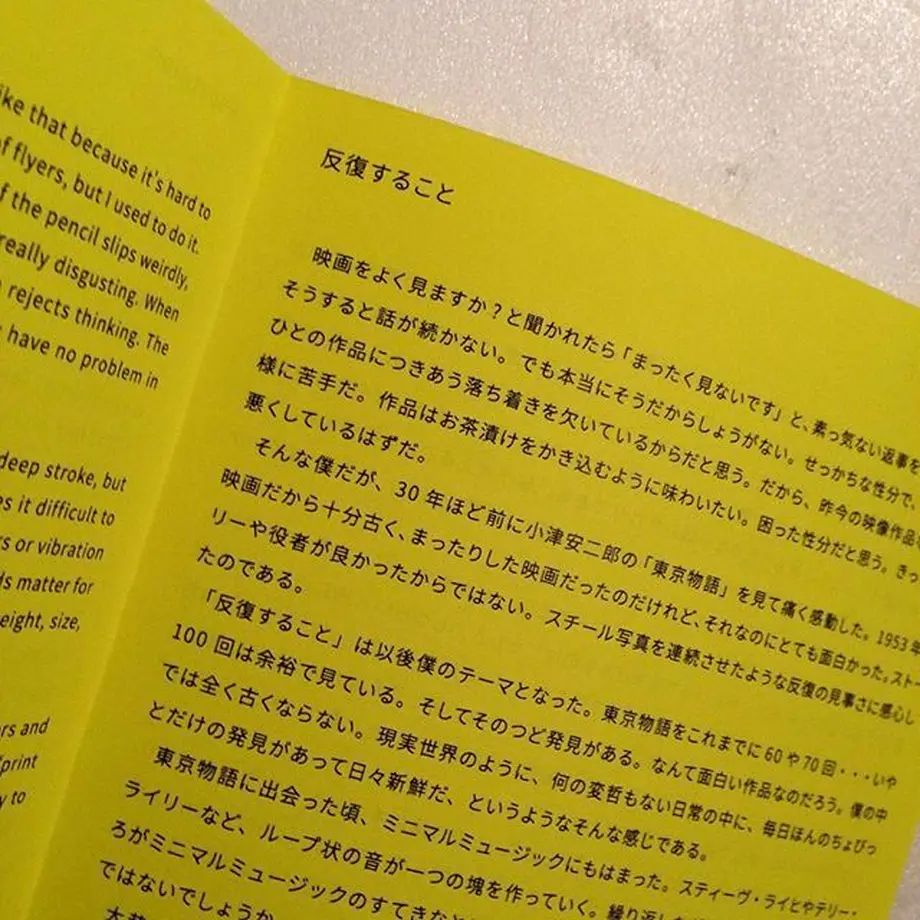 ike that because it's hard to
of flyers, but I used to do it.
f the pencil slips weirdly,
really disgusting. When
rejects thinking. The
have no problem in
deep stroke, but
es it difficult to
rs or vibration
ds matter for
eight, size,
rs and
print
y to
反復すること
映画をよく見ますか?と聞かれたら「まったく見ないです」と、素っ気ない返事を
そうすると話が続かない。でも本当にそうだからしょうがない。せっかちな性分で、
ひとの作品につきあう落ち着きを欠いているからだと思う。だから、昨今の映像作品
様に苦手だ。作品はお茶漬けをかき込むように味わいたい。困った性分だと思う。きっ
悪くしているはずだ。
そんな僕だが、30年ほど前に小津安二郎の「東京物語」を見て痛く感動した。1953年
映画だから十分古く、まったりした映画だったのだけれど、それなのにとても面白かった。ストー
リーや役者が良かったからではない。スチール写真を連続させたような反復の見事さに感心し
たのである。
「反復すること」は以後僕のテーマとなった。東京物語をこれまでに60や70回・・・いや
100回は余裕で見ている。そしてそのつど発見がある。なんて面白い作品なのだろう。僕の中
では全く古くならない。現実世界のように、何の変哲もない日常の中に、毎日ほんのちょびっ
とだけの発見があって日々新鮮だ、というようなそんな感じである。
東京物語に出会った頃、ミニマルミュージックにもはまった。スティーヴ・ライヒやテリー・
ライリーなど、ループ状の音が一つの塊を作っていく。繰り返し
ろがミニマルミュージックのすてきなと
ではないでしょうか